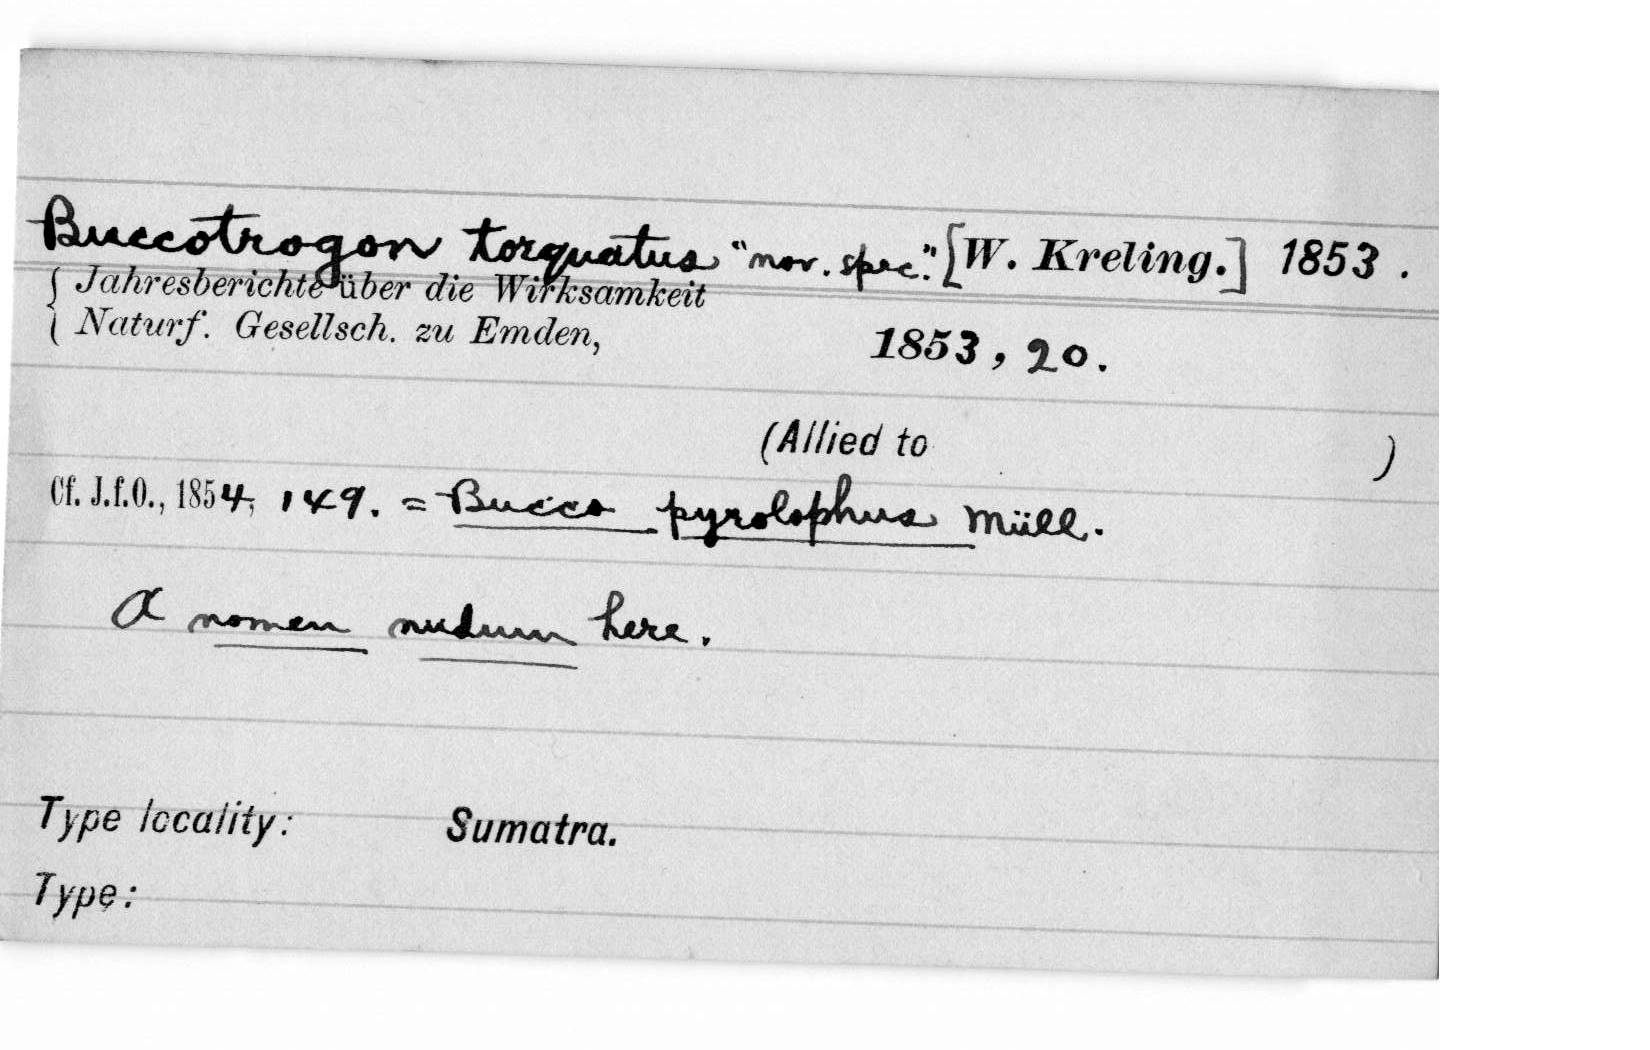 Buccotrogon torquatus "nov. spec." [W. Kreling.] 1853.
{ Jahresberichte über die Wirksamkeit
{ Naturf. Gesellsch. zu Emden, 1853, 20.
(Allied to )
Cf. J.f.O., 1854, 149. = Bucco pyrolophus Müll.
A nomen nudum here.
Type locality: Sumatra.
Type: